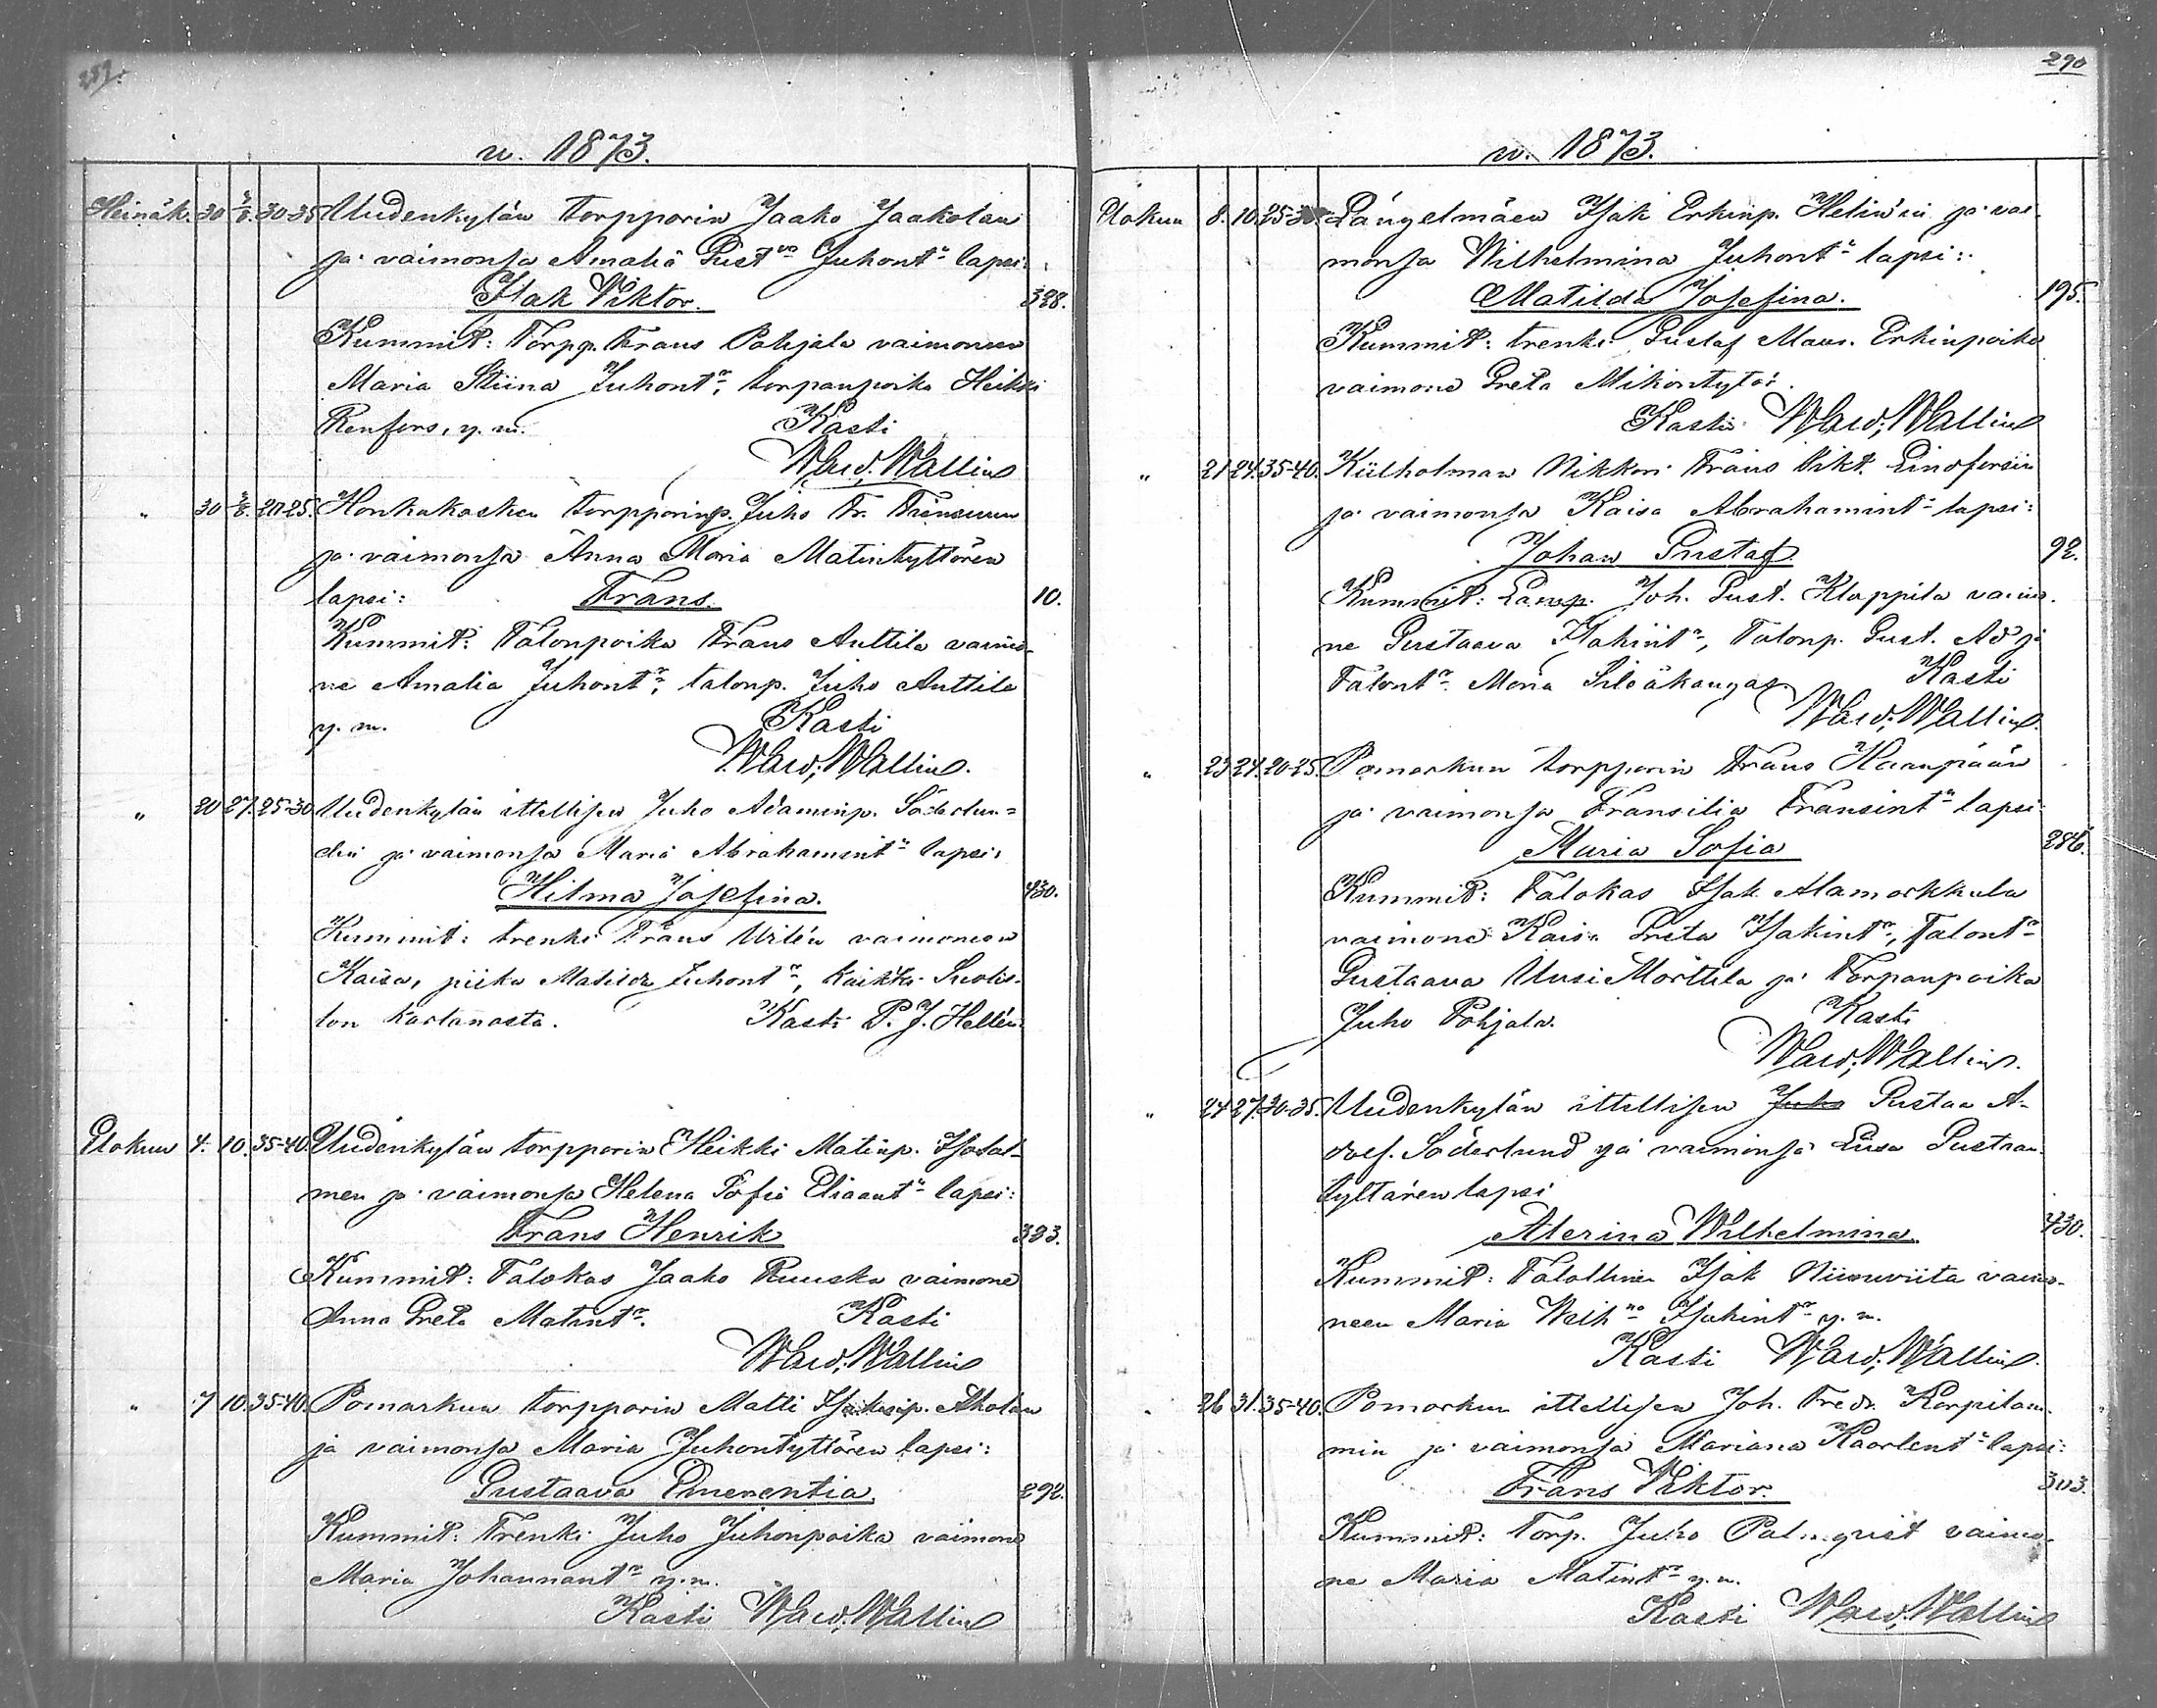 289.
v. 1873.
Heinäk. 30 3/8. 30-35 Uudenkylän torpparin Jaako Jaakolan
ja vaimonsa Amalia Gust^va Juhont^n lapsi:
Isak Viktor. 328.
Kummit: Torpp. Frans Pohjala vaimoneen
Maria Stiina Juhont^r, torpanpoika Heikki
Renfors, y. m. Kasti
Wald. Wallin
" 30 3/8. 20-25. Honkakosken torpparinp. Juho Fr.
ja vaimonsa Anna Maria Matintyttären
lapsi: Frans. 10.
Kummit: Talonpoika Frans Anttila vaimo-
ne Amalia Juhont^r, talonp. Juho Anttila
y. m. Kasti
Wald. Wallin.
" 20 27. 25-30 Uudenkylän ittellisen Juho Adaminp. Söderlun=
din ja vaimonsa Maria Abrahamint^n lapsi:
Hilma Josefina. 430.
Kummit: trenki Frans Urlén vaimoneen
Kaisa, piika Matilda Juhont^r, kaikki Suolis-
ton kartanosta. Kasti P. J. Hellén
Elokuu 4. 10. 35-40. Uudenkylän torpparin Heikki Matinp. Isosal-
men ja vaimonsa Helena Sofia Eliaant^n lapsi:
Frans Henrik 323.
Kummit: Talokas Jaako Ruuska vaimone
Anna Greta Matint^r. Kasti
Wald. Wallin
" 7 10. 35-40. Pomarkun torpparin Matti Isakinp. Aholan
ja vaimonsa Maria Juhontyttären lapsi:
Gustaava Emerentia. 292.
Kummit: Trenki Juho Juhonpoika vaimone
Maria Johannant^r y. m.
Kasti Wald. Wallin
290
v. 1873.
Elokuu 8. 10. 25-30 Längelmäen Isak Erkinp. Helin'in ja vai-
monsa Wilhelmina Juhont^n lapsi:
Matilda Josefina. 195.
Kummit: trenki Gustaf Maur. Erkinpoika
vaimone Greta Mikontytär.
Kasti Wald. Wallin
" 21 24. 35-40. Kiilholman Nikkari Frans Vikt. Lindforsin
ja vaimonsa Kaisa Abrahamint^n lapsi:
Johan Gustaf. 92.
Kummit: Lamp. Joh. Gust. Klappila vaimo-
ne Gustaava Isakint^r, Talonp. Gust. Ad ja
Talont^r. Maria Sileäkangas. Kasti
Wald. Wallin.
" 23 24. 20-25. Pomarkun torpparin Frans Haanpään
ja vaimonsa Fransilia Fransint^n lapsi:
Maria Sofia 286.
Kummit: Talokas Isak Alamarkkula
vaimone Kaisa Greta Isakint^r, Talont^r
Gustaava Uusi Marttila ja Torpanpoika
Juho Pohjala. Kasti
Wald. Wallin.
" 24 27. 30-35. Uudenkylän ittellisen Juho Gustaa A-
dolf. Söderlund ja vaimonsa Liisa Gustaan-
tyttären lapsi
Alerina Wilhelmina 430.
Kummit: Talollinen Isak Niiniviita vaimo-
neen Maria Wilh^na Isakint^r y. m.
Kasti Wald. Wallin.
" 26 31. 35-40. Pomarkun ittellisen Joh. Fredr. Korpilam-
min ja vaimonsa Mariana Kaarlent^n lapsi:
Frans Viktor. 303.
Kummit: Torp. Juho Palmqvist vaimo-
ne Maria Matint^r y. m.
Kasti Wald. Wallin